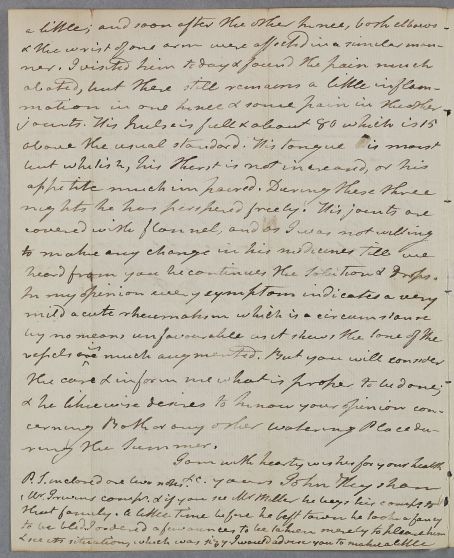 a little; and soon after the other knee, both elbows
& the wrist of one arm were affected in a similar man-
ner. I visited him to day & found the pain much
abated, but there still remains a little inflam-
mation in one knee & some pain in the other
joints. His Pulse is full & about 80 which is 15
above the usual standard. His tongue is moist
but whitish, his thirst is not increased, or his
appetite much impaired. During these three
nights he has perspered freely. His joints are
covered with flannel, and as I was not willing
to make any change in his medicines till we
heard from you he continues the solution & Drops.
In my opinion every symptom indicates a very
mild acute rheumatism which is a circumstance
by no means unfavourable as it shews the tone of the
vessels are much augmented. But you will consider
the case & inform me what is proper to be done;
& he likewise desires to know your opinion con-
cerning Bath or any other watering Place du-
ring the Summer.
I am with hearty wishes for your health
P.S. inclosed are two notes &c. yours John Heysham
Mr. Irwins comps. & if you see Mr he begs his comps. to
that family. A little time before he left town he took a fancy
to be bled. I ordered a few ounces to be taken merely to please him
& see its situation, which was I would advise you to make a little